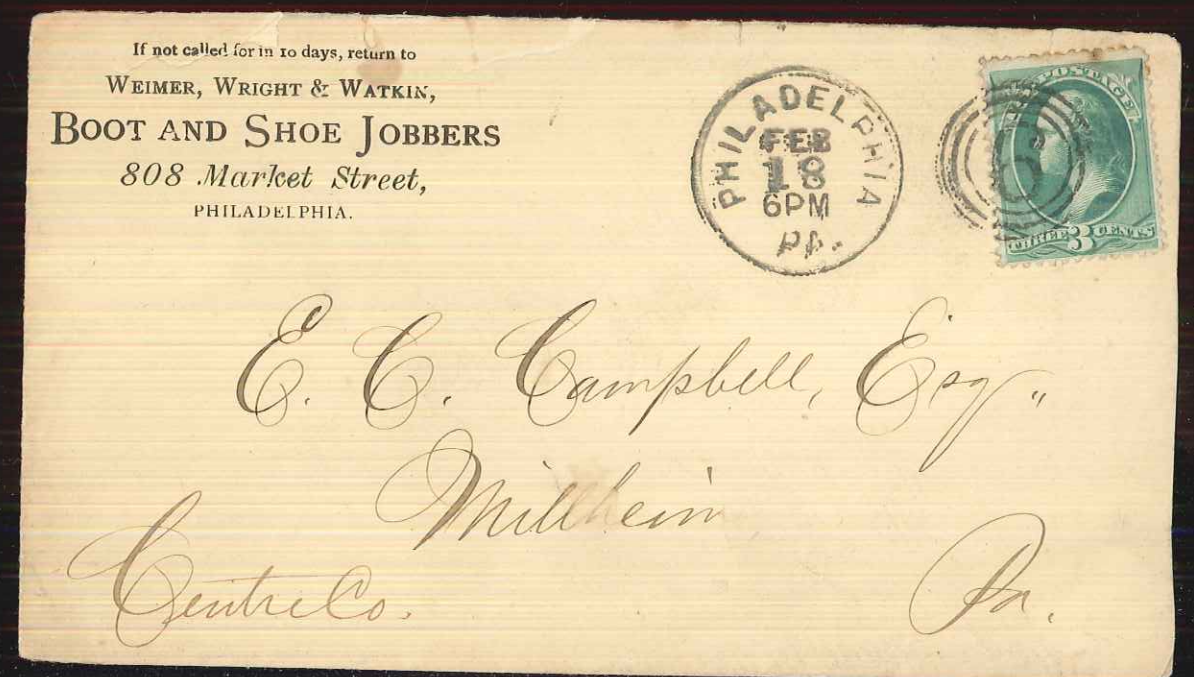 If not called for in 10 days, return to
WEIMER, WRIGHT & WATKIN,
BOOT AND SHOE JOBBERS
808 Market Street,
PHILADELPHIA.
PHILADELPHIA
FEB
18
6PM
PA.
POSTAGE
6
THREE 3 CENTS
E. C. Campbell, Esq"
Millheim
Centre Co.
Pa.